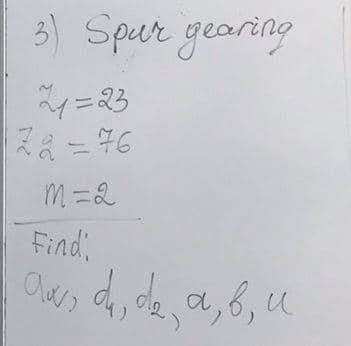 3) Spur gearing
z1 = 23
z2 = 76
m = 2
Find:
aw, d1, d2, a, b, u